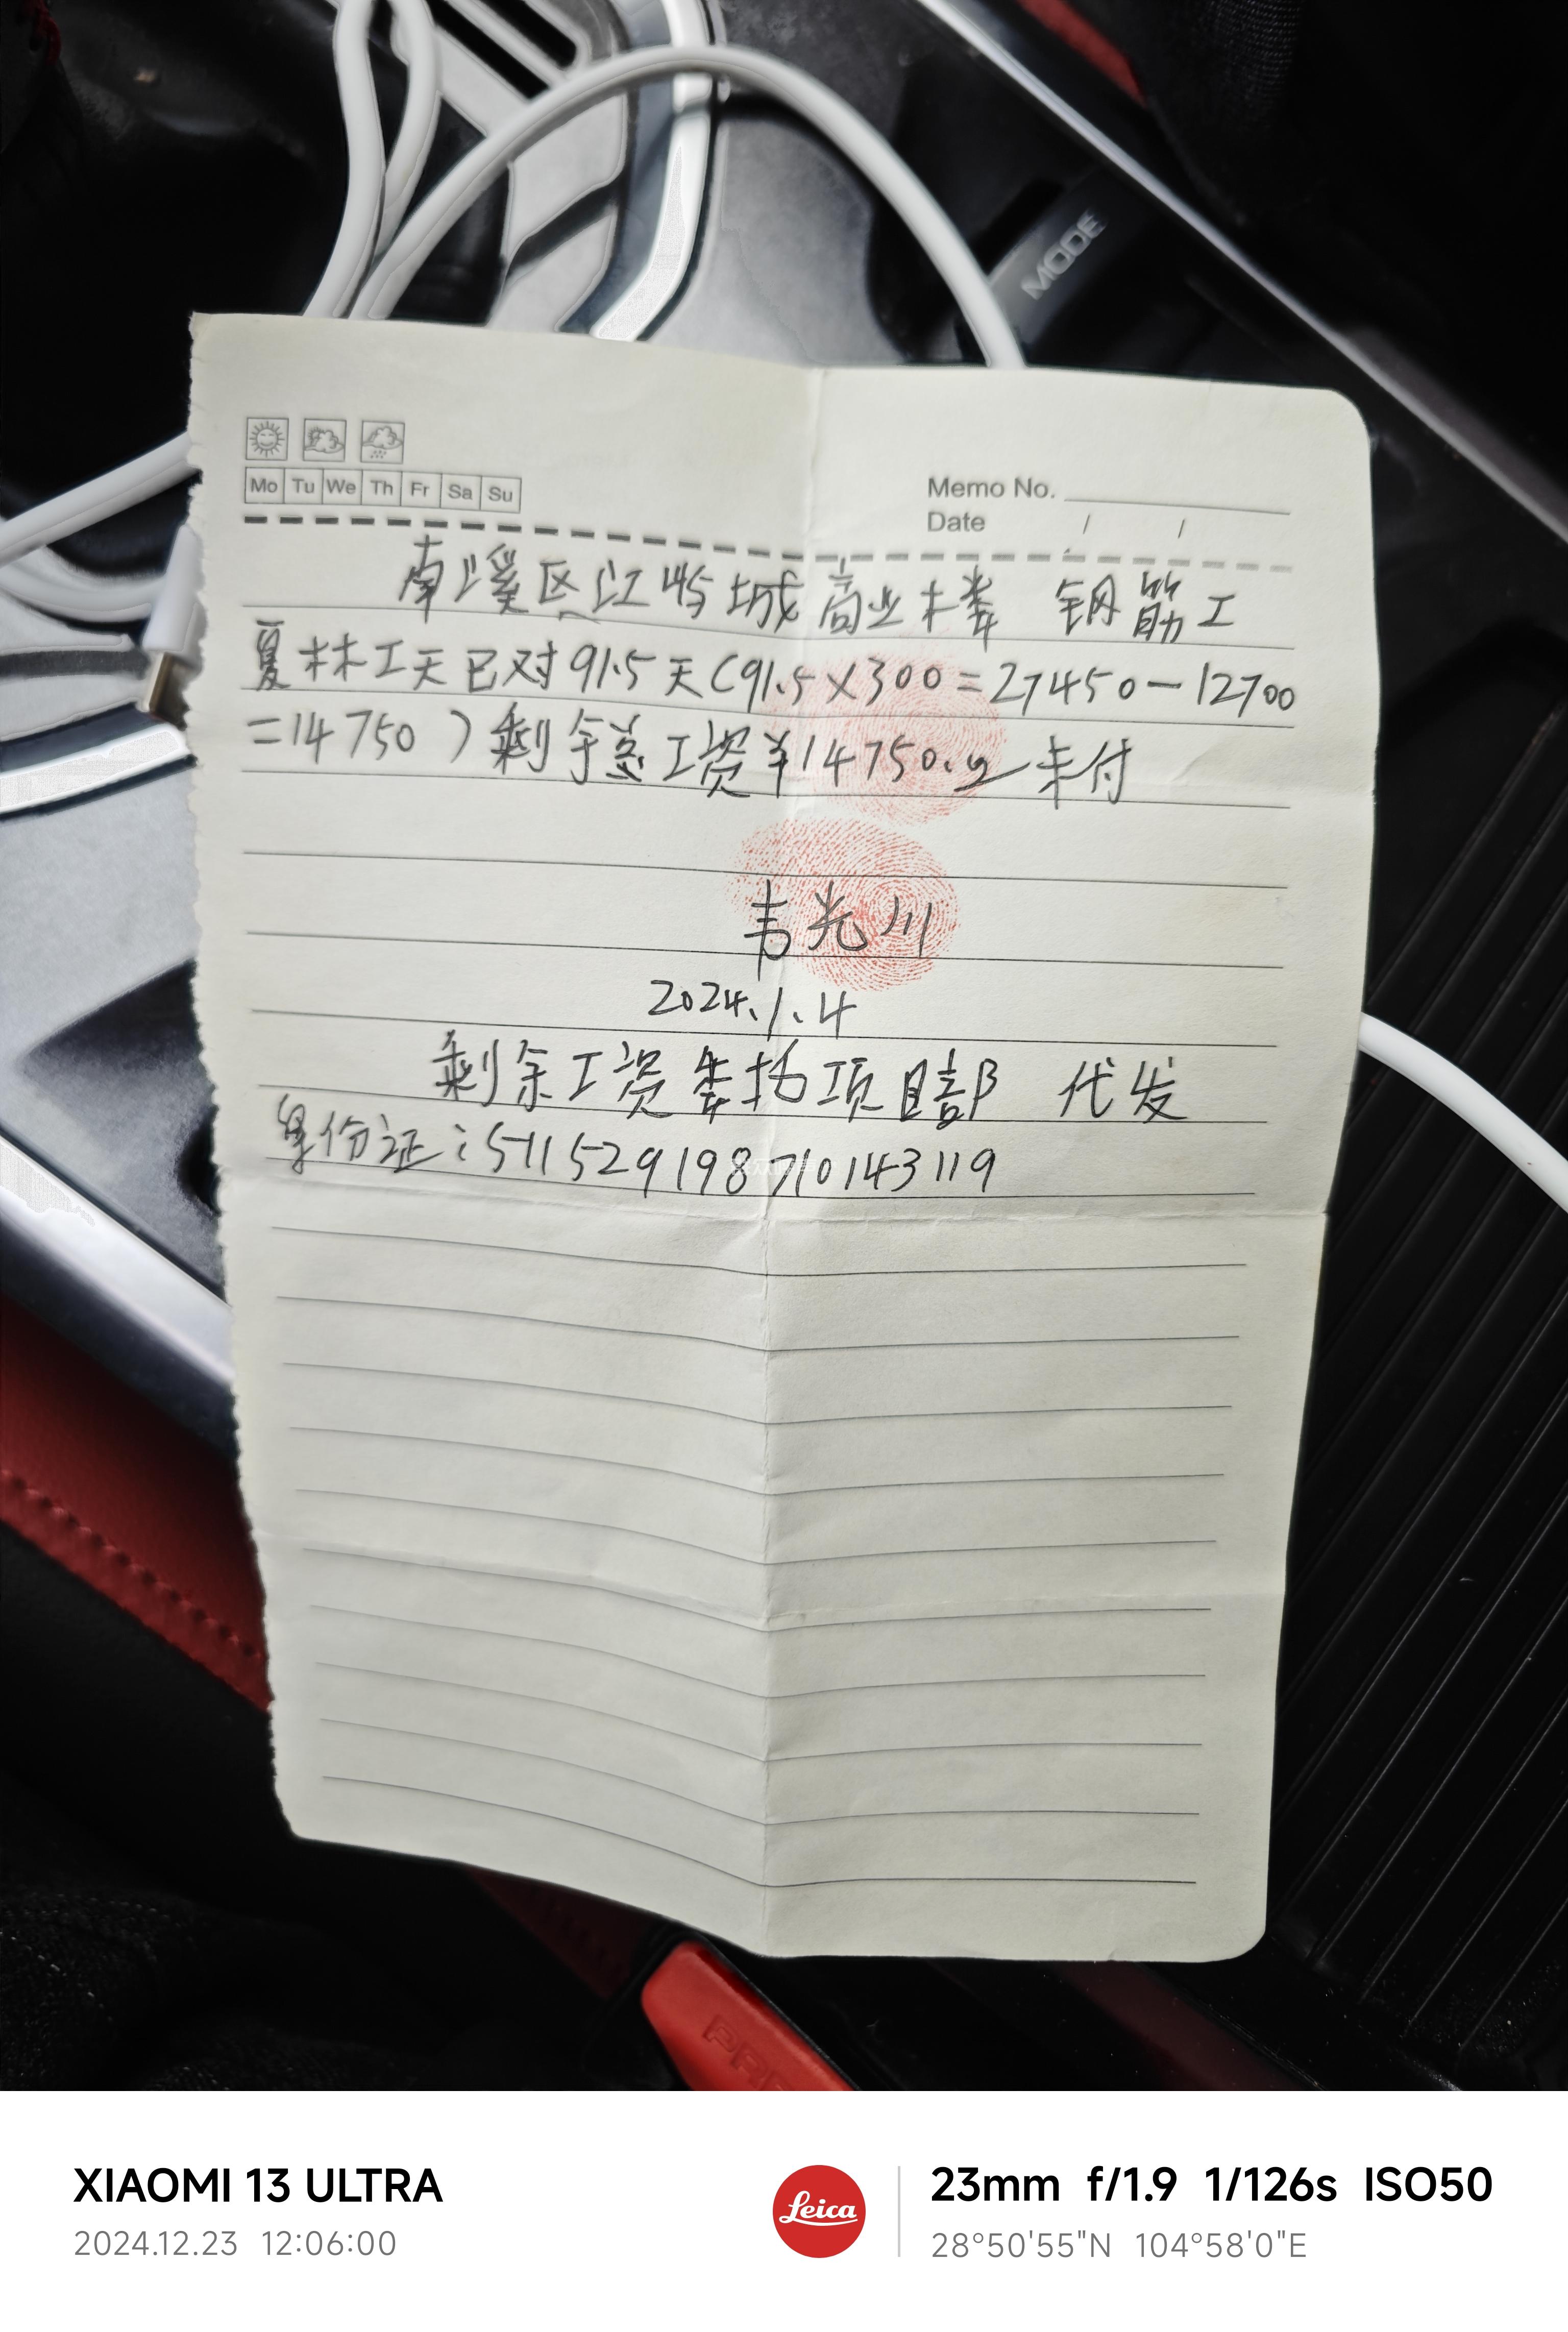 Mo Tu We Th Fr Sa Su
Memo No.
Date / /
南溪区江屿城商业楼 钢筋工
夏林工天已对91.5天(91.5×300=27450-12700
=14750)剩余总工资¥14750.00未付
韦光川
2024.1.4
剩余工资委托项目部 代发
身份证:511529198710143119
MODE
XIAOMI 13 ULTRA
2024.12.23 12:06:00
Leica
23mm f/1.9 1/126s ISO50
28°50'55"N 104°58'0"E